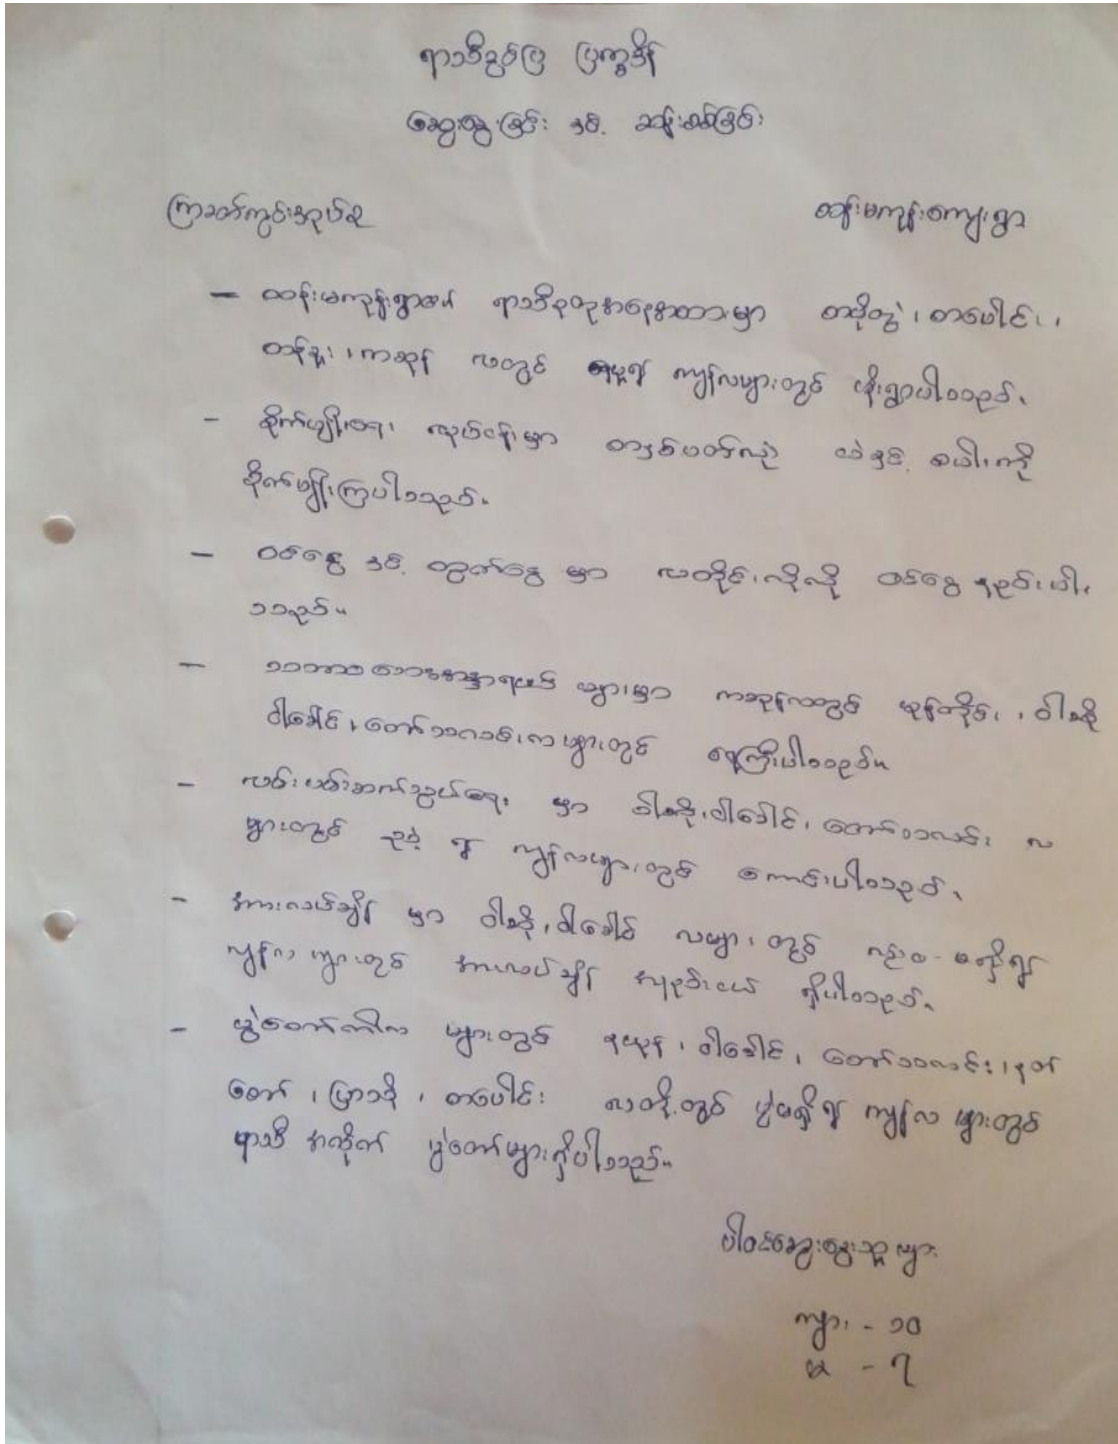 ရာသီခွင်ပြ ပြက္ခဒိန်
ဆွေးနွေးခြင်း နှင့် ဆန်းစစ်ခြင်း
ကြခတ်ကွင်းအုပ်စု ထန်းမကုန်းကျေးရွာ
– ထန်းမကုန်းရွာ၏ ရာသီဥတုအနေအထားမှာ တပို့တွဲ၊ တပေါင်း၊
တန်ခူး၊ ကဆုန် လတွင် ကျန်လများတွင် မိုးရွာပါသည်။
– စိုက်ပျိုးရေး လုပ်ငန်းမှာ တနှစ်ပတ်လုံး ပဲနှင့် စပါးကို
စိုက်ပျိုးကြပါသည်။
– ဝင်ငွေ နှင့် ထွက်ငွေ မှာ လတိုင်းလိုလို ဝင်ငွေ နည်းပါး
သည်။
– သဘာဝဘေးအန္တရာယ် များမှာ ကဆုန်လတွင် မုန်တိုင်း၊ ဝါဆို
ဝါခေါင်၊ တော်သလင်းလ များတွင် ရေကြီးပါသည်။
– လမ်းပန်းဆက်သွယ်ရေး မှာ ဝါဆို၊ ဝါခေါင်၊ တော်သလင်း လ
များတွင် ညံ့ ၍ ကျန်လများတွင် ကောင်းပါသည်။
– အားလပ်ချိန် မှာ ဝါဆို၊ ဝါခေါင် လများ တွင် လုံးဝ မရှိ၍
ကျန်လ များတွင် အားလပ်ချိန် အနည်းငယ် ရှိပါသည်။
– ပွဲတော်ကာလ များတွင် နယုန်၊ ဝါခေါင်၊ တော်သလင်း၊ နတ်
တော်၊ ပြာသို၊ တပေါင်း လတို့တွင် ပွဲမရှိ၍ ကျန်လ များတွင်
ရာသီ အလိုက် ပွဲတော်များရှိပါသည်။
ပါဝင်ဆွေးနွေးသူများ
ကျား - ၁၀
မ - ၇